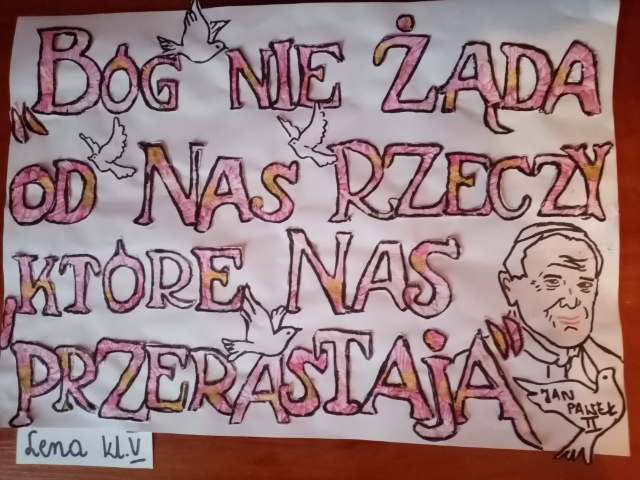 „BÓG NIE ŻĄDA
OD NAS RZECZY
KTÓRE NAS
PRZERASTAJĄ”
JAN
PAWEŁ
II
Lena kl. V